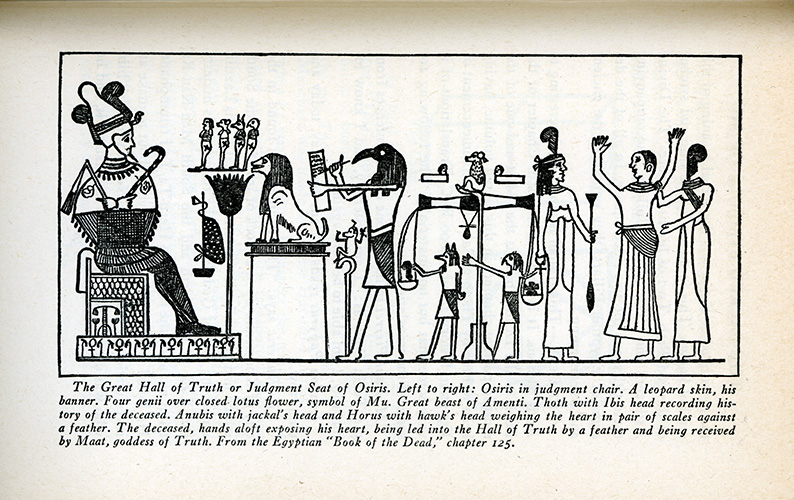 The Great Hall of Truth or Judgment Seat of Osiris. Left to right: Osiris in judgment chair. A leopard skin, his
banner. Four genii over closed lotus flower, symbol of Mu. Great beast of Amenti. Thoth with Ibis head recording his-
tory of the deceased. Anubis with jackal's head and Horus with hawk's head weighing the heart in pair of scales against
a feather. The deceased, hands aloft exposing his heart, being led into the Hall of Truth by a feather and being received
by Maat, goddess of Truth. From the Egyptian "Book of the Dead," chapter 125.